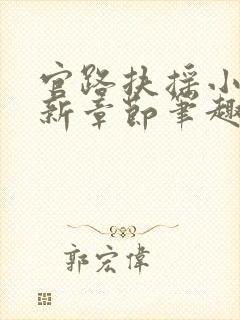 官路扶摇小
新章节笔趣
郭宏伟